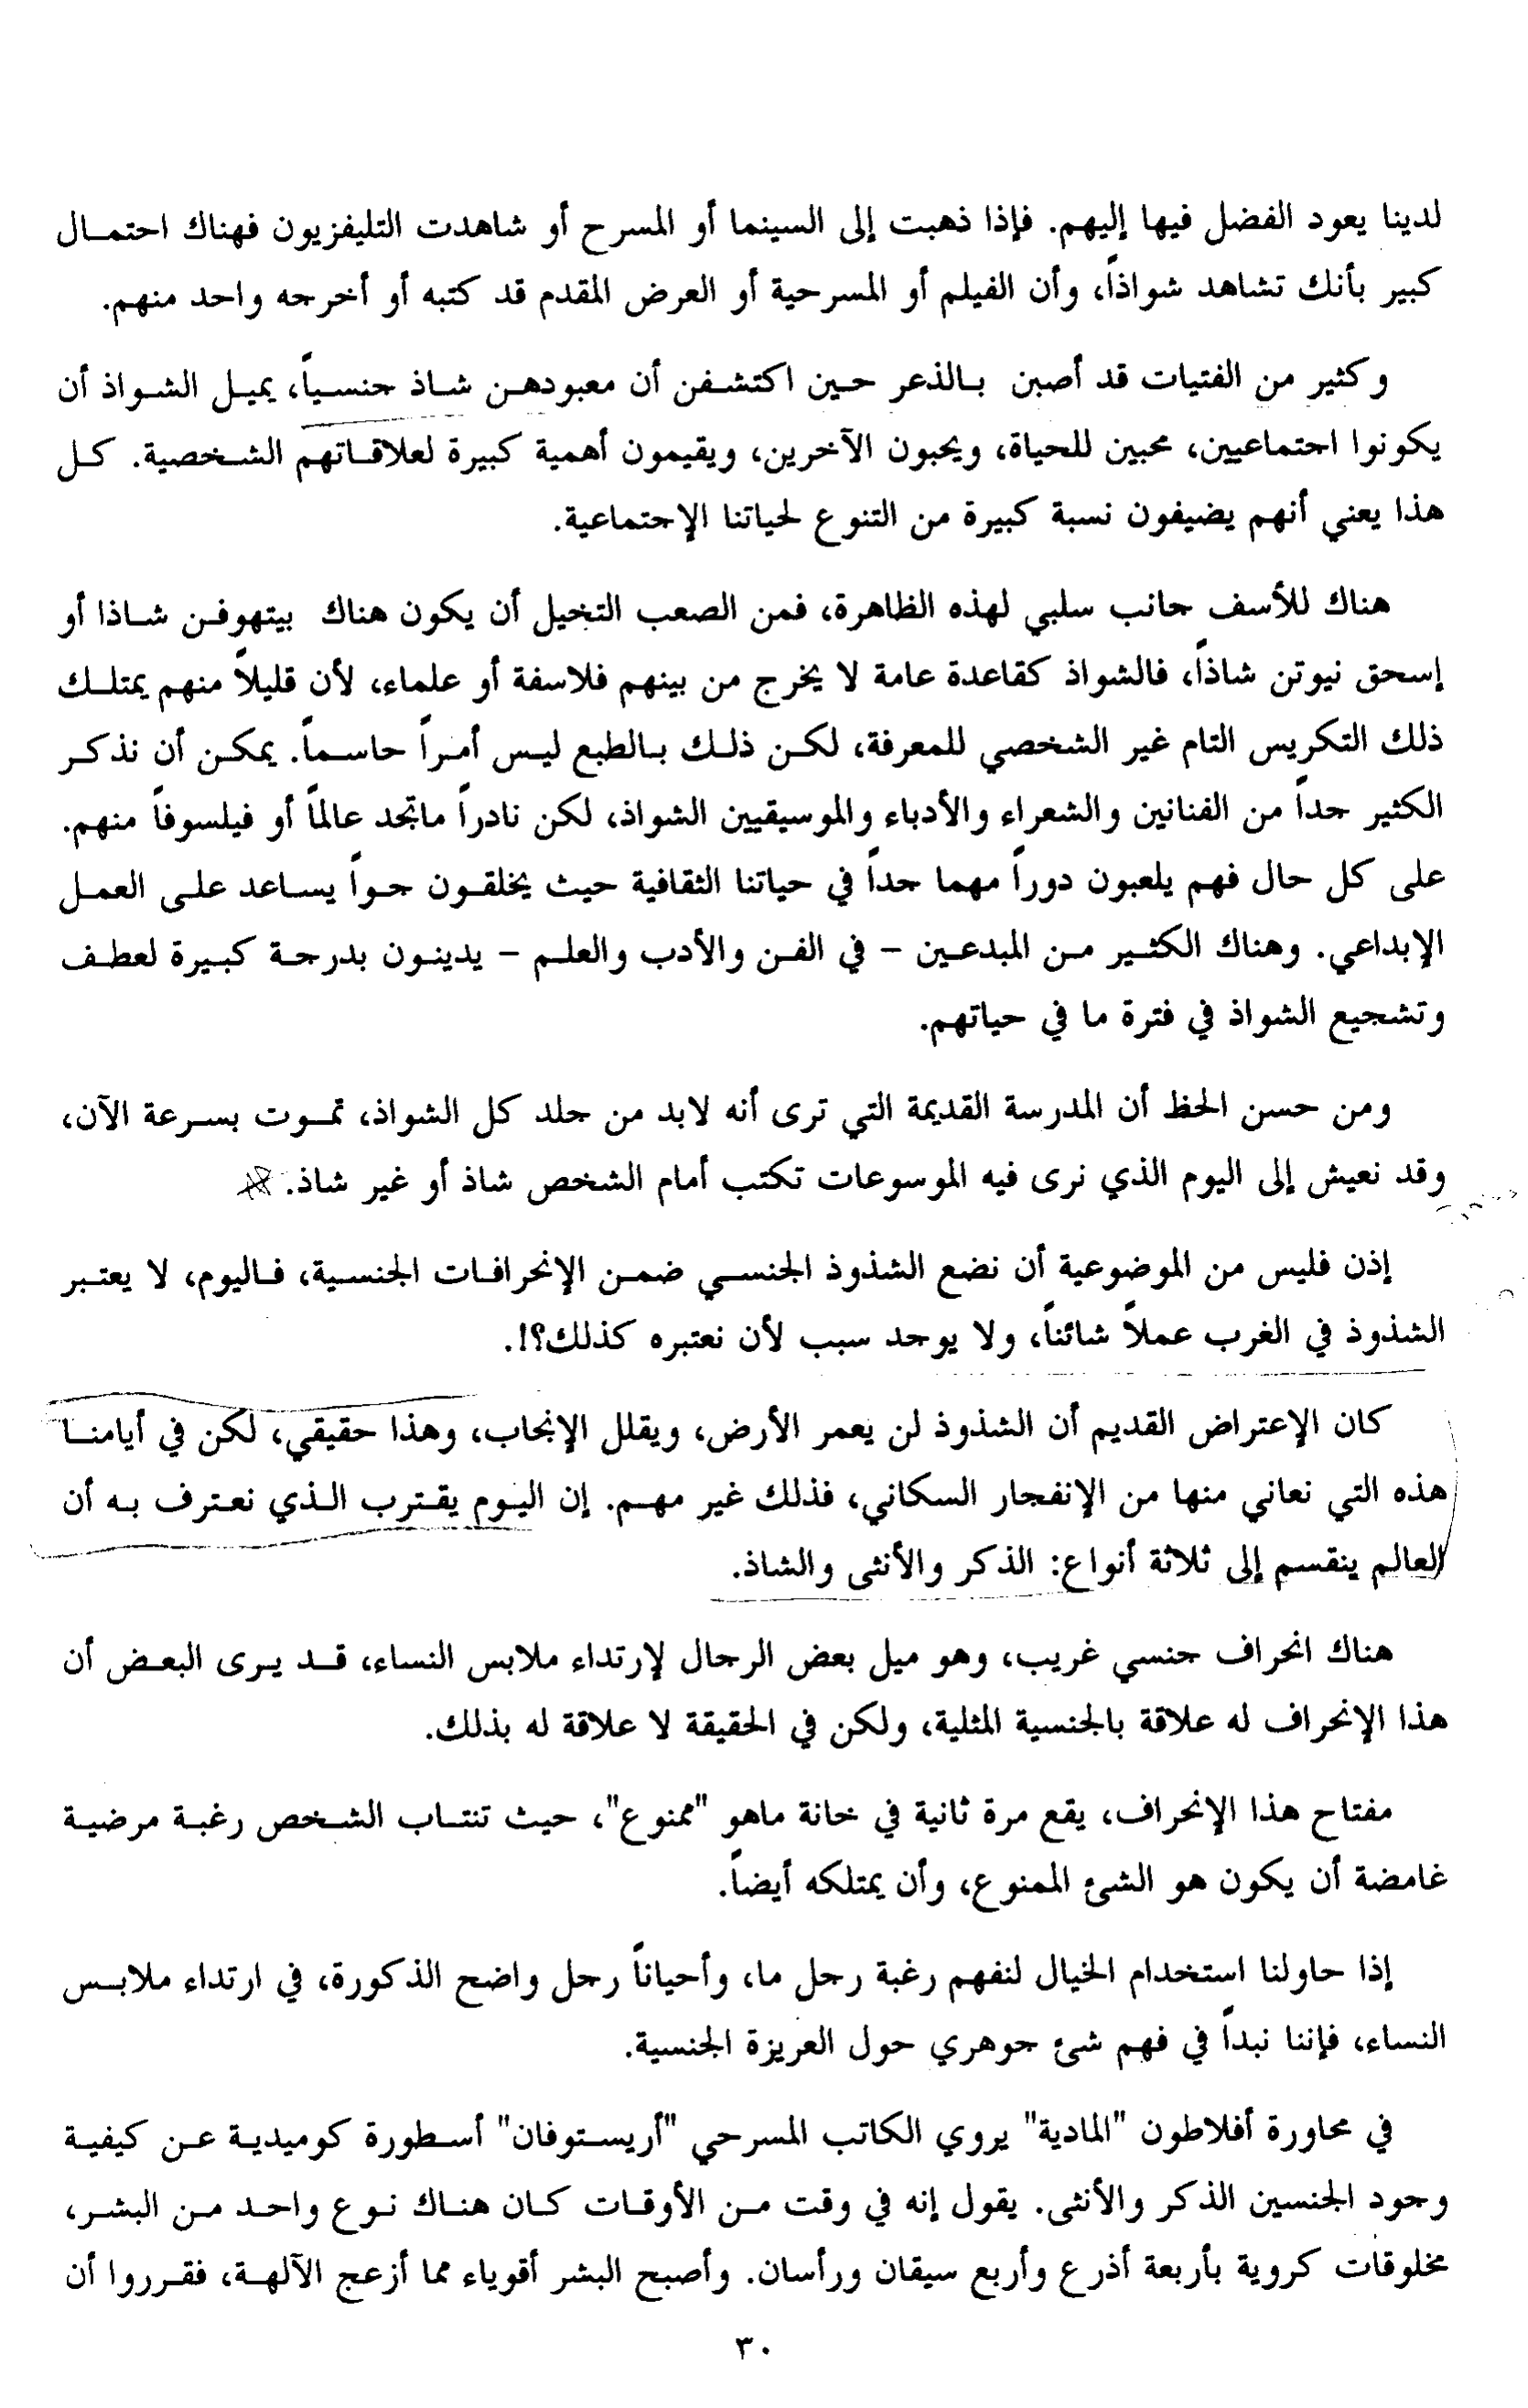 لدينا يعود الفضل فيها إليهم. فإذا ذهبت إلى السينما أو المسرح أو شاهدت التليفزيون فهناك احتمال
كبير بأنك تشاهد شواذاً، وأن الفيلم أو المسرحية أو العرض المقدم قد كتبه أو أخرجه واحد منهم.
وكثير من الفتيات قد أصبن بالذعر حين اكتشفن أن معبودهن شاذ جنسياً، يميل الشواذ أن
يكونوا اجتماعيين، محبين للحياة، ويحبون الآخرين، ويقيمون أهمية كبيرة لعلاقاتهم الشخصية. كل
هذا يعني أنهم يضيفون نسبة كبيرة من التنوع لحياتنا الإجتماعية.
هناك للأسف جانب سلبي لهذه الظاهرة، فمن الصعب التخيل أن يكون هناك بيتهوفن شاذا أو
إسحق نيوتن شاذاً، فالشواذ كقاعدة عامة لا يخرج من بينهم فلاسفة أو علماء، لأن قليلاً منهم يمتلك
ذلك التكريس التام غير الشخصي للمعرفة، لكن ذلك بالطبع ليس أمراً حاسماً. يمكن أن نذكر
الكثير جداً من الفنانين والشعراء والأدباء والموسيقيين الشواذ، لكن نادراً ماتجد عالماً أو فيلسوفاً منهم.
على كل حال فهم يلعبون دوراً مهما جداً في حياتنا الثقافية حيث يخلقون جواً يساعد على العمل
الإبداعي. وهناك الكثير من المبدعين - في الفن والأدب والعلم - يدينون بدرجة كبيرة لعطف
وتشجيع الشواذ في فترة ما في حياتهم.
ومن حسن الحظ أن المدرسة القديمة التي ترى أنه لابد من جلد كل الشواذ، تموت بسرعة الآن،
وقد نعيش إلى اليوم الذي نرى فيه الموسوعات تكتب أمام الشخص شاذ أو غير شاذ.
إذن فليس من الموضوعية أن نضع الشذوذ الجنسي ضمن الإنحرافات الجنسية، فاليوم، لا يعتبر
الشذوذ في الغرب عملاً شائناً، ولا يوجد سبب لأن نعتبره كذلك؟!.
كان الإعتراض القديم أن الشذوذ لن يعمر الأرض، ويقلل الإنجاب، وهذا حقيقي، لكن في أيامنا
هذه التي نعاني منها من الإنفجار السكاني، فذلك غير مهم. إن اليوم يقترب الذي نعترف به أن
العالم ينقسم إلى ثلاثة أنواع: الذكر والأنثى والشاذ.
هناك انحراف جنسي غريب، وهو ميل بعض الرجال لإرتداء ملابس النساء، قد يرى البعض أن
هذا الإنحراف له علاقة بالجنسية المثلية، ولكن في الحقيقة لا علاقة له بذلك.
مفتاح هذا الإنحراف، يقع مرة ثانية في خانة ماهو "ممنوع"، حيث تنتاب الشخص رغبة مرضية
غامضة أن يكون هو الشئ الممنوع، وأن يمتلكه أيضاً.
إذا حاولنا استخدام الخيال لنفهم رغبة رجل ما، وأحياناً رجل واضح الذكورة، في ارتداء ملابس
النساء، فإننا نبدأ في فهم شئ جوهري حول العريزة الجنسية.
في محاورة أفلاطون "المادية" يروي الكاتب المسرحي "أريستوفان" أسطورة كوميدية عن كيفية
وجود الجنسين الذكر والأنثى. يقول إنه في وقت من الأوقات كان هناك نوع واحد من البشر،
مخلوقات كروية بأربعة أذرع وأربع سيقان ورأسان. وأصبح البشر أقوياء مما أزعج الآلهة، فقرروا أن
٣٠